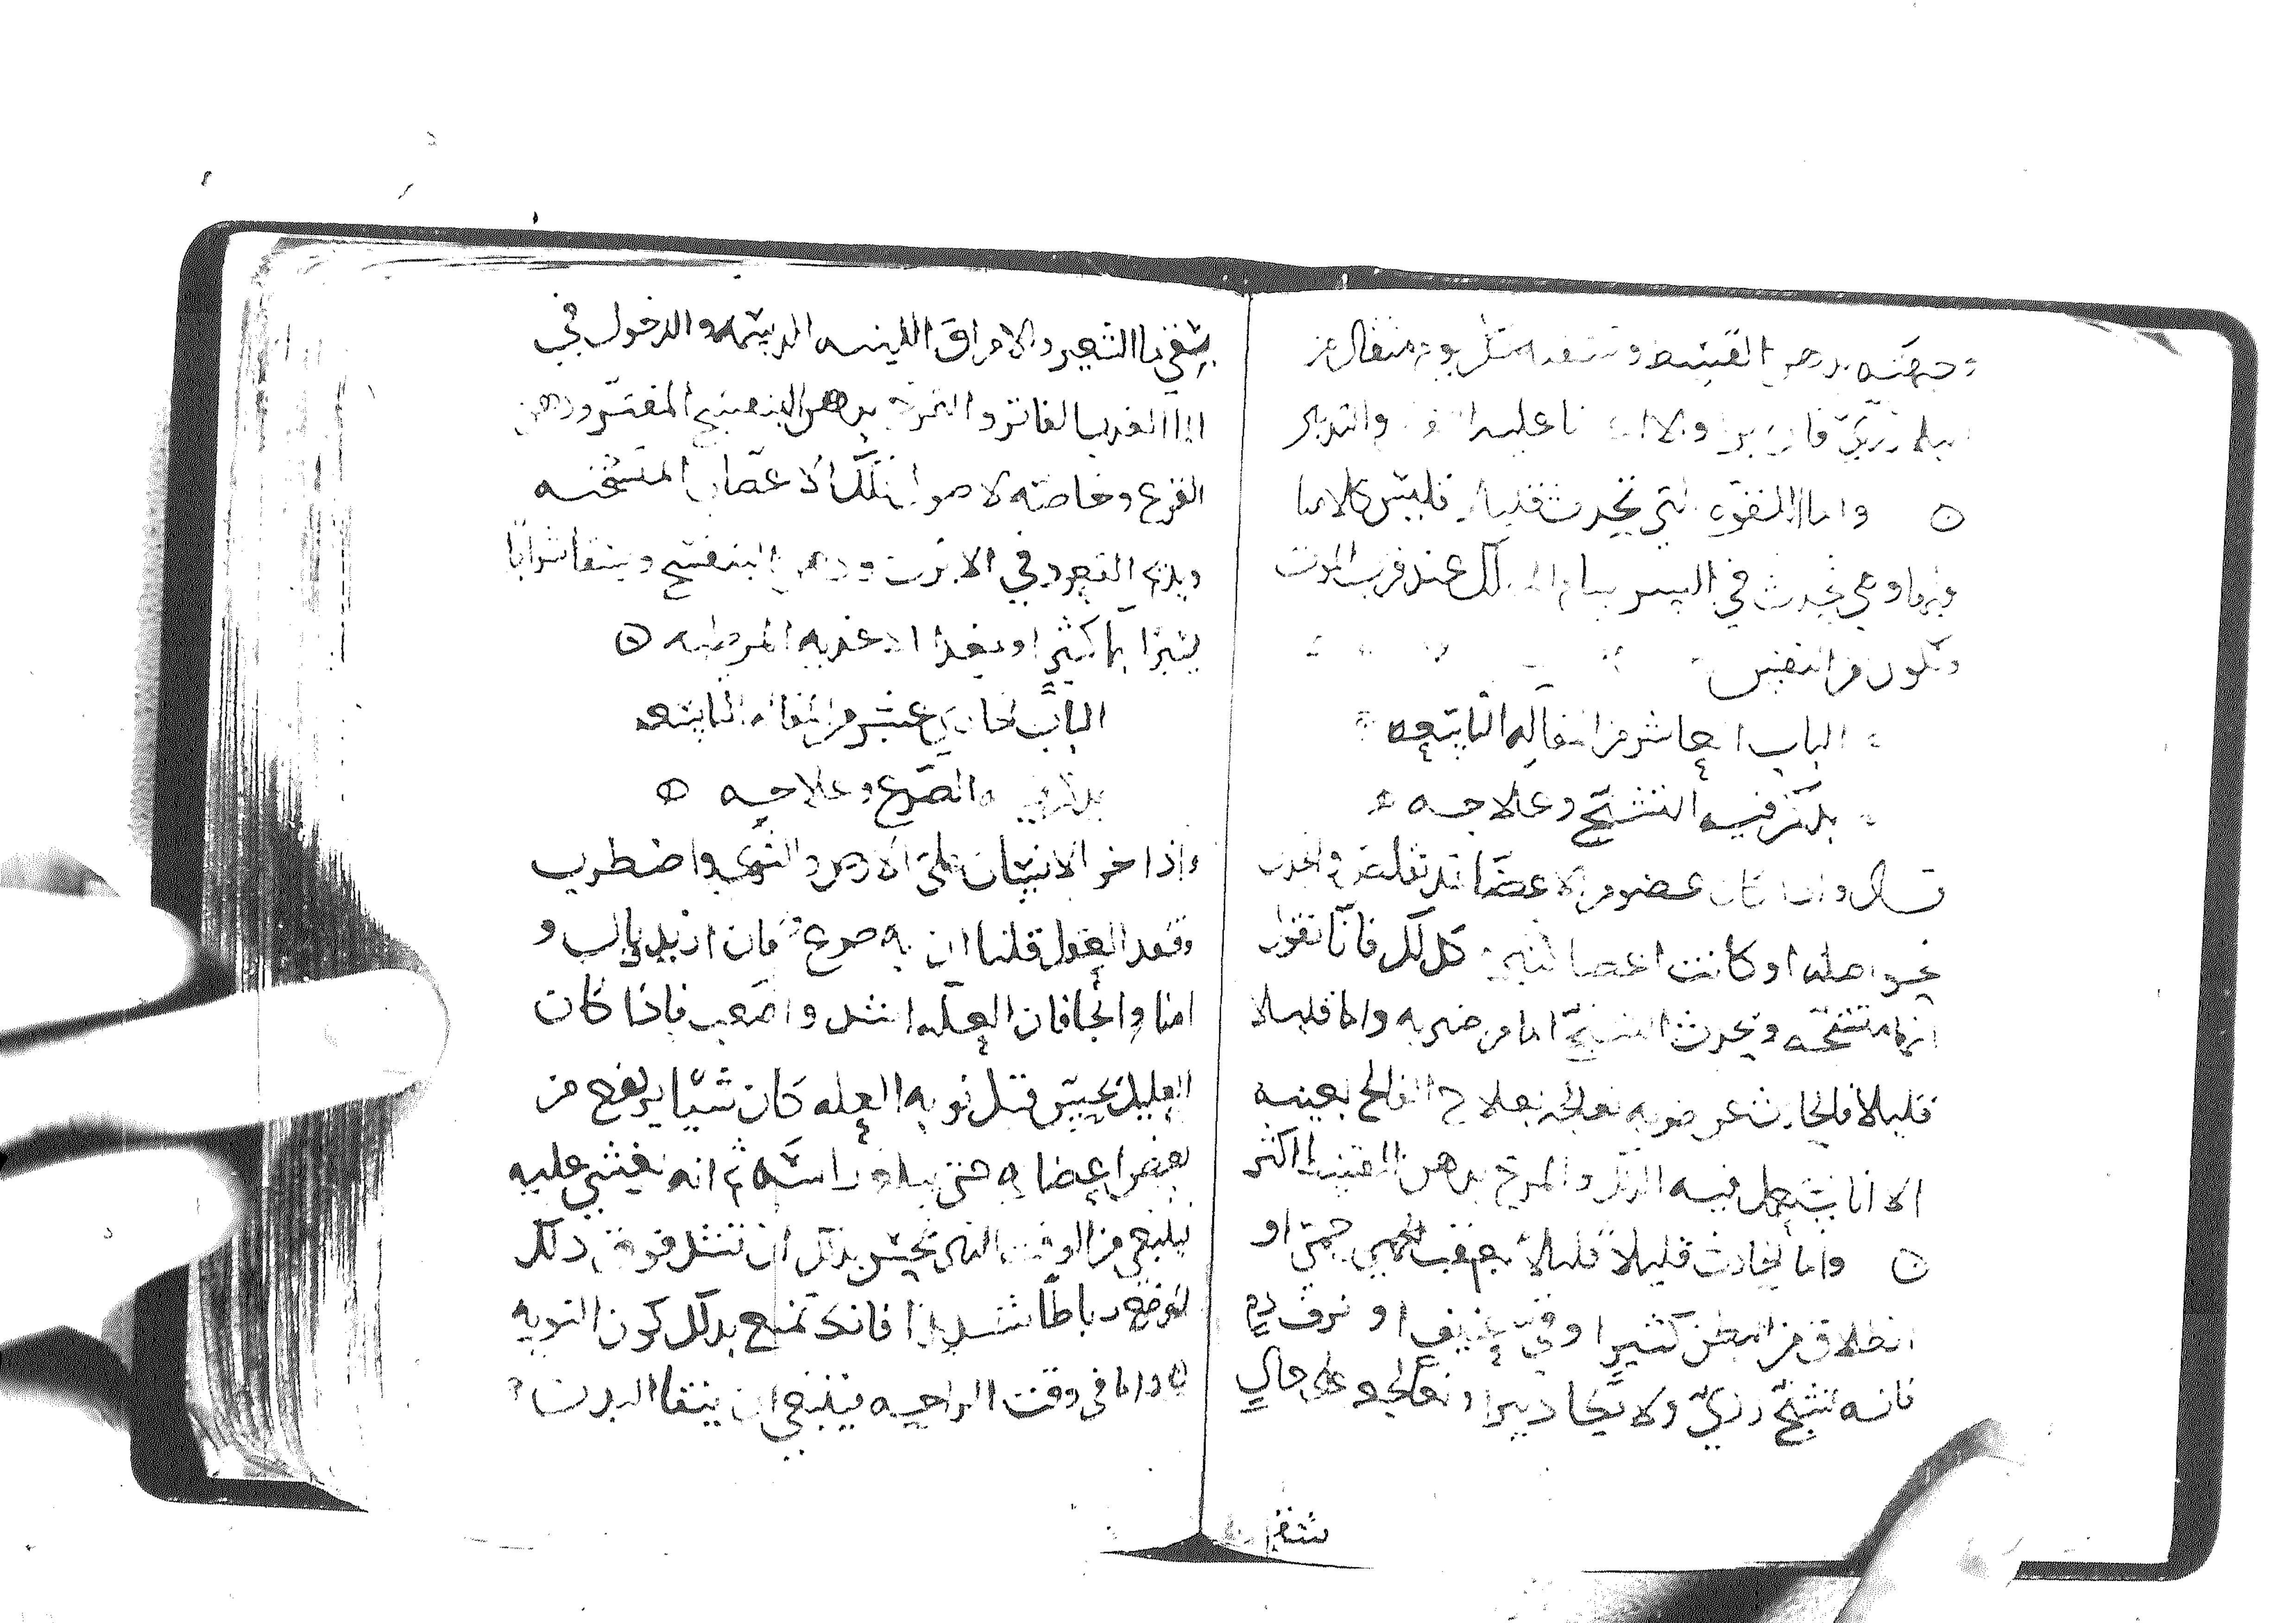 وجهته بدهن القسط وتسقيه كل يوم مثقال من
فان برا والا اعلم والتدبير
ه واما اللقوه التي تحدث قليلا فليس كلامنا
فيها وهي تحدث في اليسر عند قرب الموت
وتكون من اليبس
الباب العاشر من المقاله التاسعه
يذكر فيه التشنج وعلاجه
قال واذا كان عضو من الاعضا قد تقلص وانجذب
نحو اصله او كانت اعضا كثيره كذلك فانا نقول
انها متشنجه ويحدث التشنج اما من ضربه واما قليلا
قليلا فالحادث عن ضربه نعالجه بعلاج الفالج بعينه
الا انا نستعمل فيه الدلك والمرخ بدهن القسط اكثر
ه واما الحادث قليلا قليلا بعقب حمى او
انطلاق من البطن كثيرا وقي عنيف او نزف دم
فانه تشنج ردي ولا يكاد يبرا ونعالجه على حال
يسقي ما الشعير والامراق اللينه الدسمه والدخول في
الما العذب الفاتر والتمرخ بدهن البنفسج المفتر ودهن
القرع وخاصه لاصول تلك الاعضا المتشنجه
ويلزم القعود في الابزن ودهن البنفسج ويسقا شرابا
يسيرا بما كثير او يغذا الاغذيه المرطبه ه
الباب الحادي عشر من المقاله التاسعه
يذكر فيه الصرع وعلاجه ه
واذا خر الانسان على الارض والتوى واضطرب
وفقد العقل قلنا ان به صرع فان ازبد وبال و
امنا وانجا فان العله اشد واصعب فاذا كان
العليل يحس قبل نوبه العله كان شيا يرتفع من
بعض اعضايه حتى يبلغ راسه ثم انه يغشى عليه
فينبغي من الوقت الذي يحس بذلك ان تشد فوق ذلك
الموضع رباطا شديدا فانك تمنع بذلك كون النوبه
ه واما في وقت الراحه فينبغي ان ينقا البدن